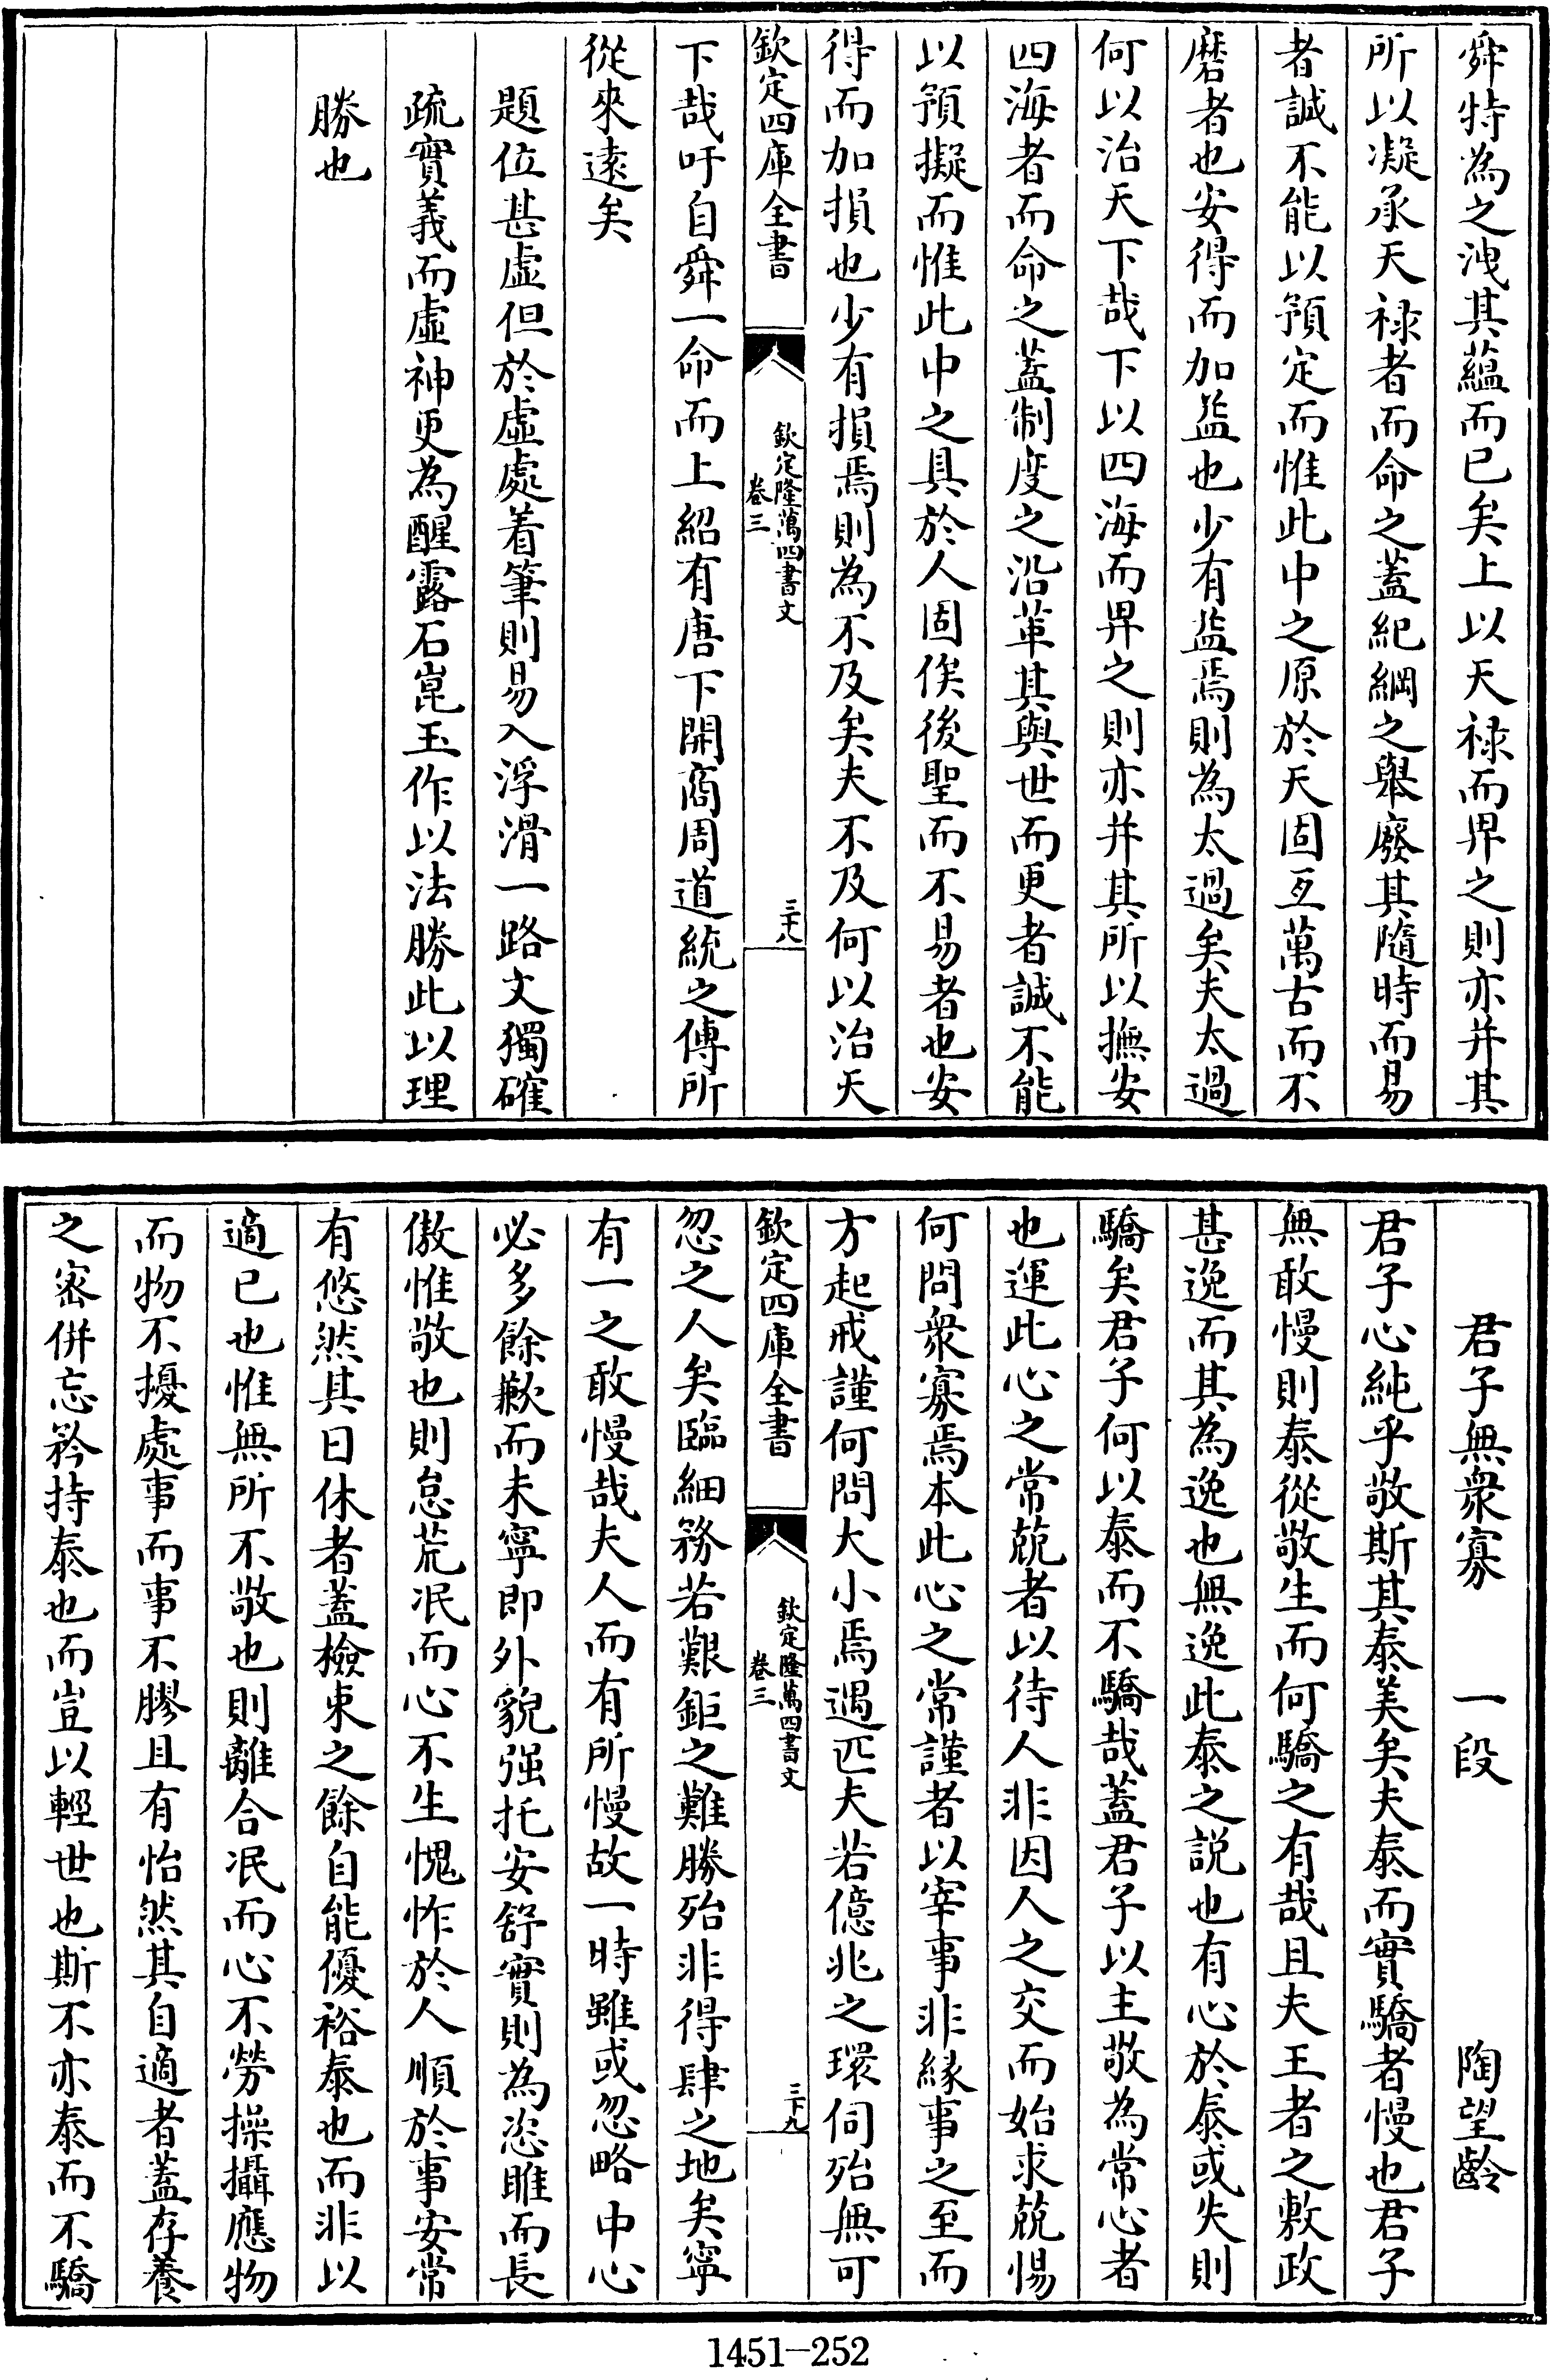 舜特為之洩其蘊而已矣上以天祿而畀之則亦并其
所以凝承天祿者而命之蓋紀綱之舉廢其隨時而易
者誠不能以預定而惟此中之原於天固亙萬古而不
磨者也安得而加益也少有益焉則為太過矣夫太過
何以治天下哉下以四海而畀之則亦并其所以撫安
四海者而命之蓋制度之沿革其與世而更者誠不能
以預擬而惟此中之具於人固俟後聖而不易者也安
得而加損也少有損焉則為不及矣夫不及何以治天
欽定四庫全書
欽定隆萬四書文
卷三
三十八
下哉吁自舜一命而上紹有唐下開商周道統之傳所
從來遠矣
題位甚虛但於虛處着筆則易入浮滑一路文獨確
疏實義而虛神更為醒露石崑玉作以法勝此以理
勝也
君子無衆寡 一段 陶望齡
君子心純乎敬斯其泰美矣夫泰而實驕者慢也君子
無敢慢則泰從敬生而何驕之有哉且夫王者之敷政
甚逸而其為逸也無逸此泰之說也有心於泰或失則
驕矣君子何以泰而不驕哉蓋君子以主敬為常心者
也運此心之常兢者以待人非因人之交而始求兢惕
何問衆寡焉本此心之常謹者以宰事非緣事之至而
方起戒謹何問大小焉遇匹夫若億兆之環伺殆無可
欽定四庫全書
欽定隆萬四書文
卷三
三十九
忽之人矣臨細務若艱鉅之難勝殆非得肆之地矣寧
有一之敢慢哉夫人而有所慢故一時雖或忽略中心
必多餘歉而未寧即外貌强托安舒實則為恣睢而長
傲惟敬也則怠荒泯而心不生愧怍於人順於事安常
有悠然其日休者蓋檢束之餘自能優裕泰也而非以
適已也惟無所不敬也則離合泯而心不勞操攝應物
而物不擾處事而事不膠且有怡然其自適者蓋存養
之密併忘矜持泰也而豈以輕世也斯不亦泰而不驕
1451-252